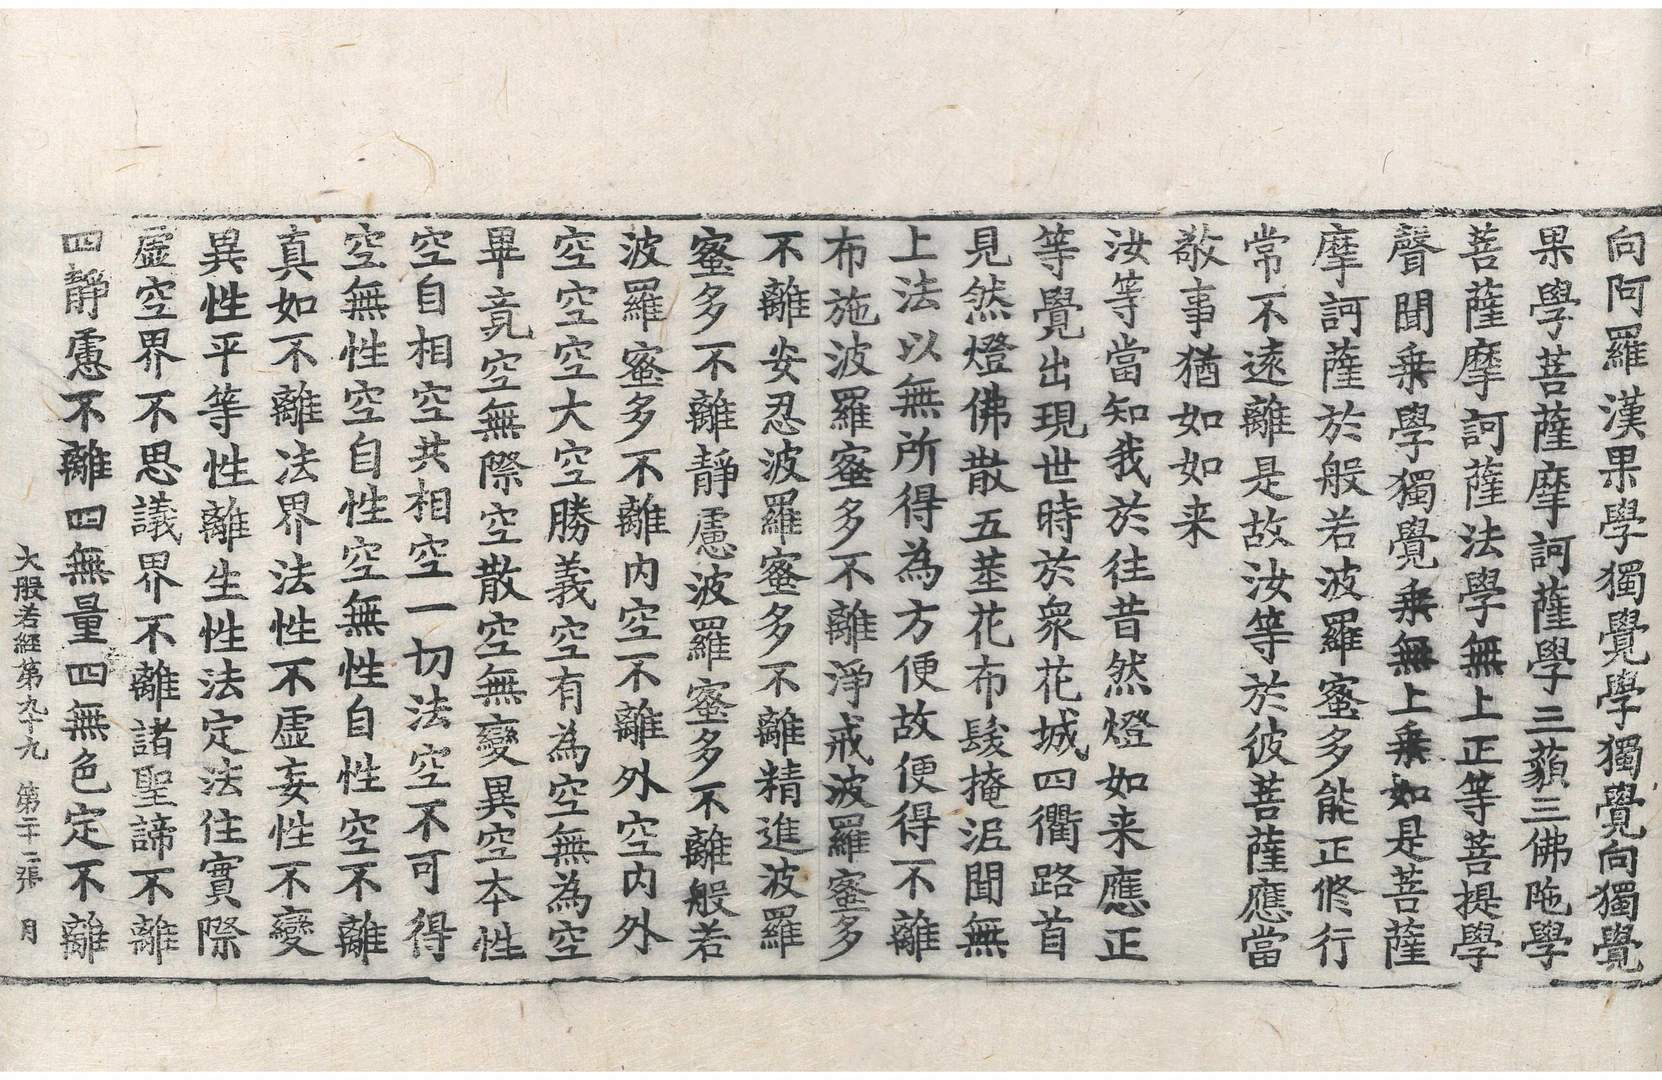 向阿羅漢果學獨覺學獨覺向獨覺
果學菩薩摩訶薩學三藐三佛陁學
菩薩摩訶薩法學無上正等菩提學
聲聞乗學獨覺乗無上乗如是菩薩
摩訶薩於般若波羅蜜多能正修行
常不遠離是故汝等於彼菩薩應當
敬事猶如如来
汝等當知我於往昔然燈如来應正
等覺出現世時於衆花城四衢路首
見然燈佛散五莖花布髮掩泥聞無
上法以無所得為方便故便得不離
布施波羅蜜多不離淨戒波羅蜜多
不離安忍波羅蜜多不離精進波羅
蜜多不離靜慮波羅蜜多不離般若
波羅蜜多不離內空不離外空內外
空空空大空勝義空有為空無為空
畢竟空無際空散空無變異空本性
空自相空共相空一切法空不可得
空無性空自性空無性自性空不離
真如不離法界法性不虛妄性不變
異性平等性離生性法定法住實際
虛空界不思議界不離諸聖諦不離
四靜慮不離四無量四無色定不離
大般若経第九十九 第二十二張 月